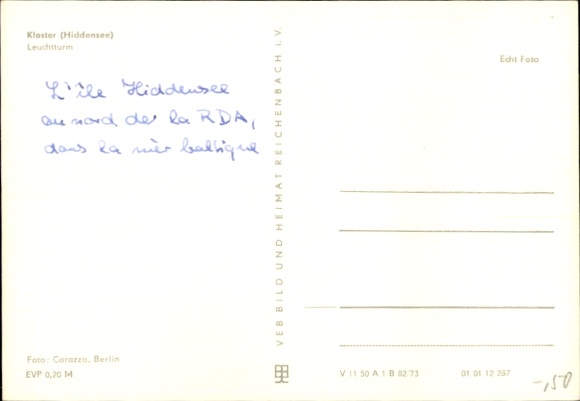 Kloster (Hiddensee)
Leuchtturm
Echt Foto
L'île Hiddensee
au nord de la RDA,
dans la mer baltique
VEB BILD UND HEIMAT REICHENBACH i. V.
Foto: Corazza, Berlin
EVP 0,20 M
V 11 50 A 1 B 82/73
01 01 12 287
-,50